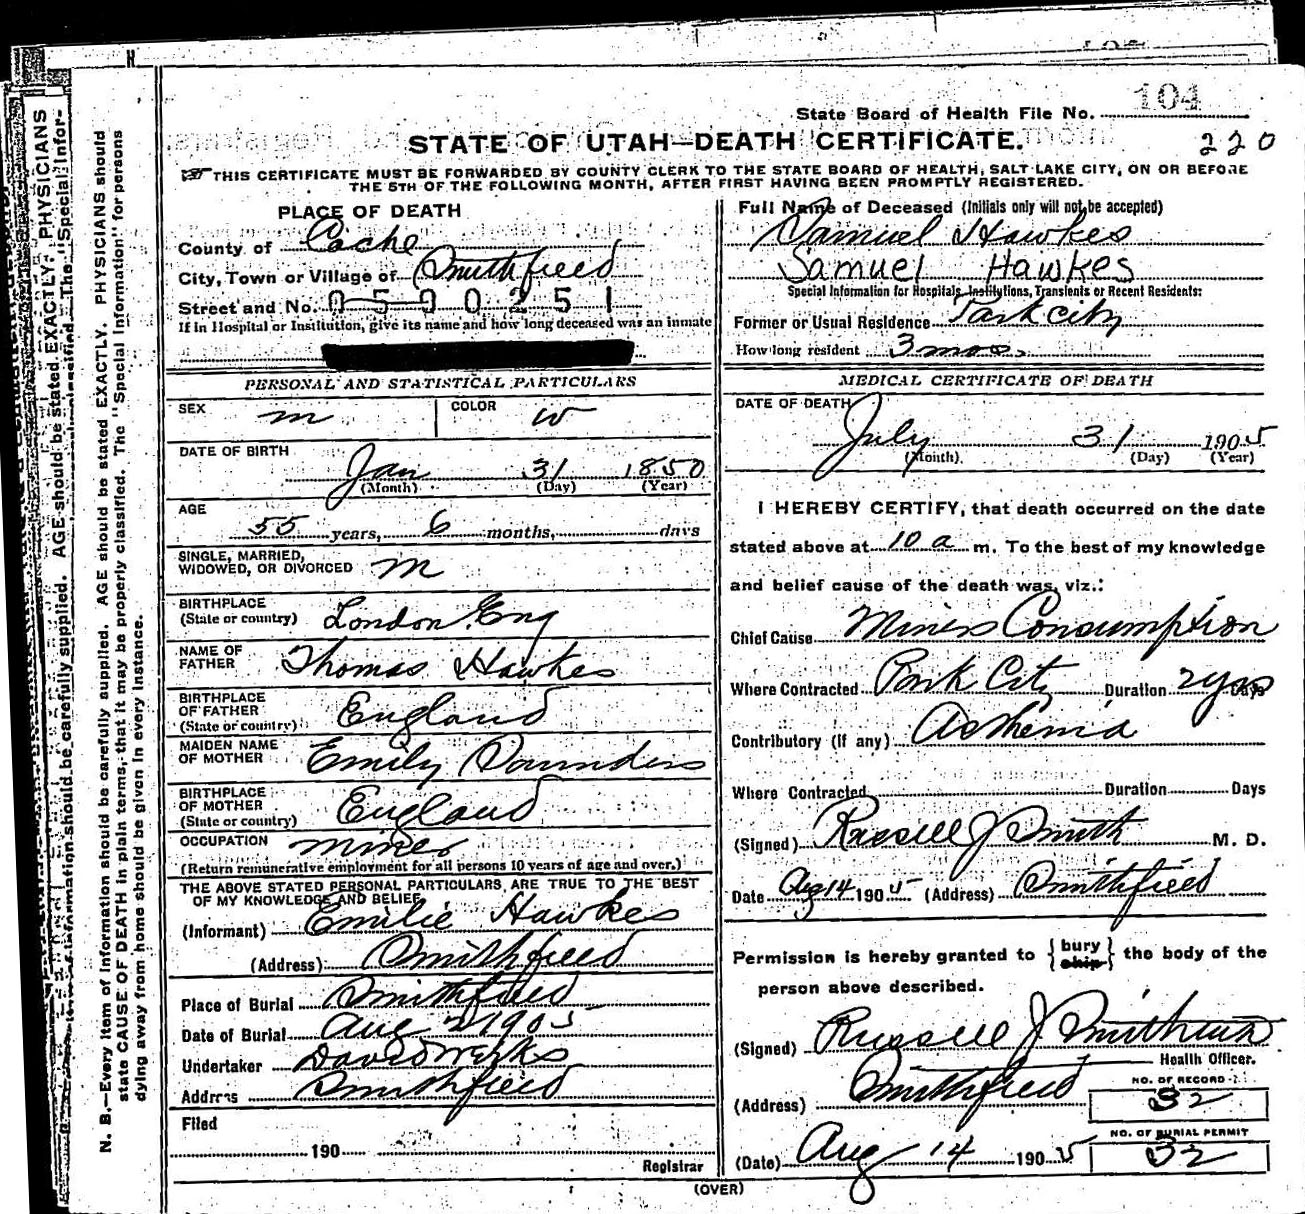 State Board of Health File No. 104
STATE OF UTAH—DEATH CERTIFICATE.
220
THIS CERTIFICATE MUST BE FORWARDED BY COUNTY CLERK TO THE STATE BOARD OF HEALTH, SALT LAKE CITY, ON OR BEFORE
THE 5TH OF THE FOLLOWING MONTH, AFTER FIRST HAVING BEEN PROMPTLY REGISTERED.
PLACE OF DEATH
County of Cache
City, Town or Village of Smithfield
Street and No. 0500251
If in Hospital or Institution, give its name and how long deceased was an inmate
PERSONAL AND STATISTICAL PARTICULARS
SEX m COLOR w
DATE OF BIRTH
Jan 31 1850
(Month) (Day) (Year)
AGE
55 years, 6 months, days
SINGLE, MARRIED,
WIDOWED, OR DIVORCED m
BIRTHPLACE
(State or country) London Eng
NAME OF
FATHER Thomas Hawkes
BIRTHPLACE
OF FATHER
(State or country) England
MAIDEN NAME
OF MOTHER Emily Saunders
BIRTHPLACE
OF MOTHER
(State or country) England
OCCUPATION miner
(Return remunerative employment for all persons 10 years of age and over.)
THE ABOVE STATED PERSONAL PARTICULARS ARE TRUE TO THE BEST
OF MY KNOWLEDGE AND BELIEF
(Informant) Emilie Hawkes
(Address) Smithfield
Place of Burial Smithfield
Date of Burial Aug 2 1905
Undertaker David Weeks
Address Smithfield
Filed
190
Registrar
Full Name of Deceased (Initials only will not be accepted)
Samuel Hawkes
Samuel Hawkes
Special Information for Hospitals, Institutions, Transients or Recent Residents:
Former or Usual Residence Park city
How long resident 3 mos.
MEDICAL CERTIFICATE OF DEATH
DATE OF DEATH
July 31 1905
(Month) (Day) (Year)
I HEREBY CERTIFY, that death occurred on the date
stated above at 10 a m. To the best of my knowledge
and belief cause of the death was, viz.:
Chief Cause Miners Consumption
Where Contracted Park City Duration 2 yrs Days
Contributory (if any) Asthenia
Where Contracted Duration Days
(Signed) Russell J Smith M. D.
Date Aug 14 1905 (Address) Smithfield
Permission is hereby granted to { bury ship } the body of the
person above described.
(Signed) Russell J Smith
Health Officer.
(Address) Smithfield
NO. OF RECORD
32
NO. OF BURIAL PERMIT
32
(Date) Aug 14 1905
(OVER)
N. B.—Every item of information should be carefully supplied. AGE should be stated EXACTLY. PHYSICIANS should
state CAUSE OF DEATH in plain terms, that it may be properly classified. The "Special Information" for persons
dying away from home should be given in every instance.